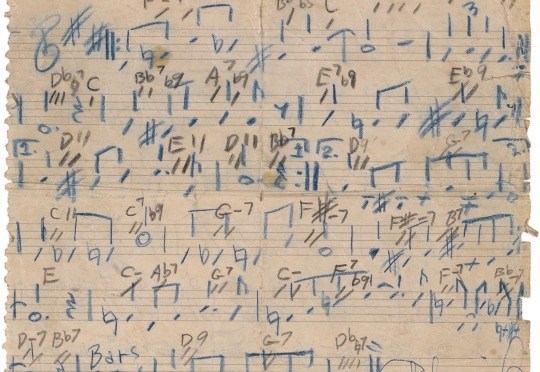 F-7 Bb C 3
Db9 C Bb7 b9 A7 b9 E7b9 Eb9
1. D11 E11 D11 Bb7 1. 2. D9 G-7 2.
C11 C7 b9 G-7 F#-7 F#-7 B7
E C- Ab7 G7 C- F-7 b9 F-7 Bb7
D-7 Bb7 Bars D9 G-7 Db7